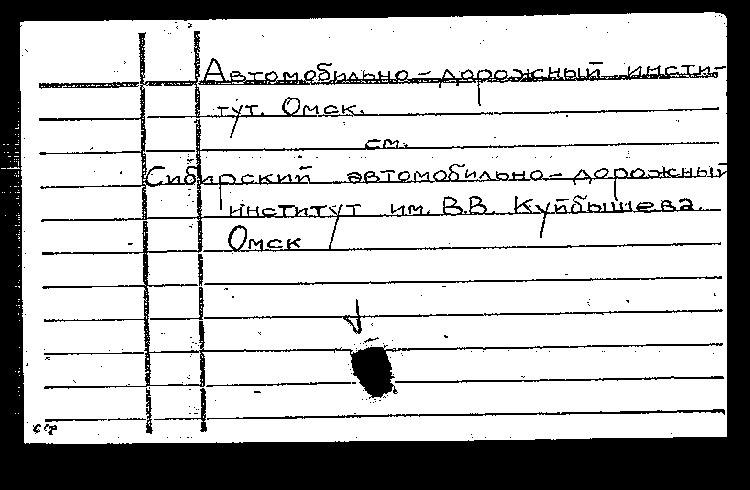 Автомобильно-дорожный инсти-
тут. Омск.
см.
Сибирский автомобильно-дорожный
институт им. В.В. Куйбышева.
Омск